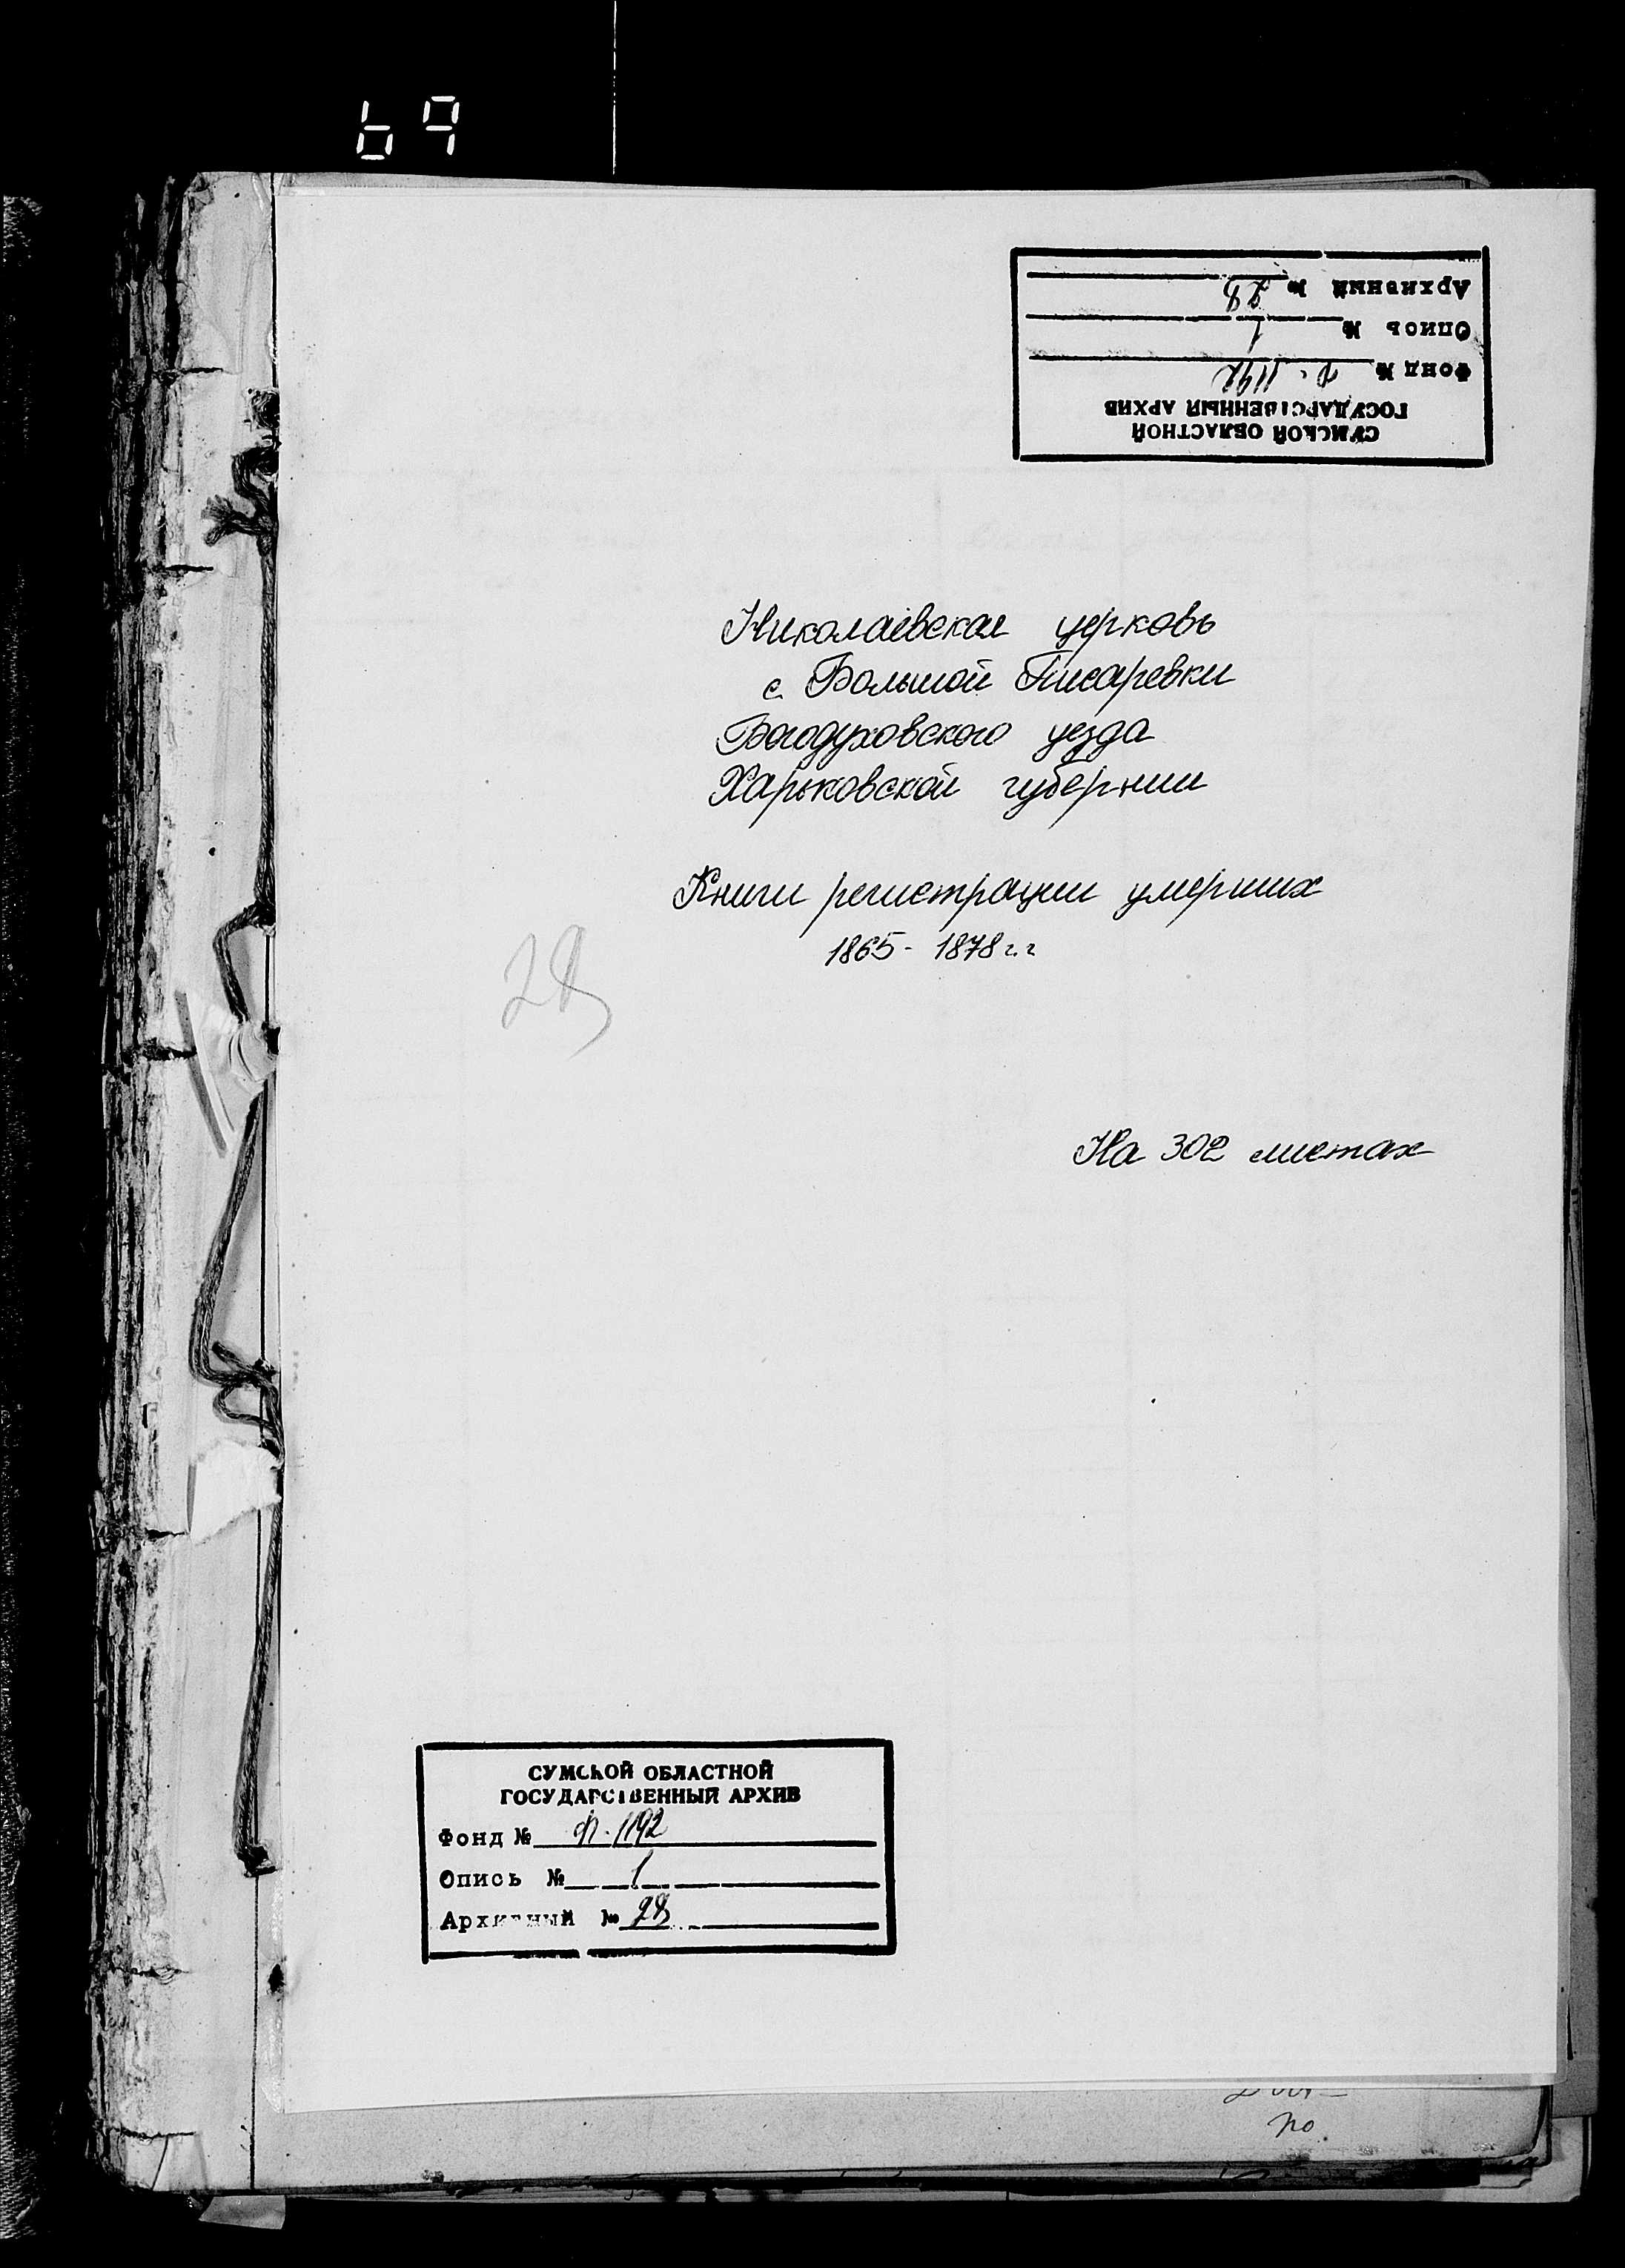 69
Архивный № 28
Опись № 1
Фонд № р. 1192
СУМСКОЙ ОБЛАСТНОЙ
ГОСУДАРСТВЕННЫЙ АРХИВ
Николаевская церковь
с. Большой Писаревки
Богодуховского уезда
Харьковской губернии
Книги регистрации умерших
1865 - 1878 г.г
28
На 302 листах
СУМСКОЙ ОБЛАСТНОЙ
ГОСУДАРСТВЕННЫЙ АРХИВ
Фонд № р. 1192
Опись № 1
Архивный № 28
по